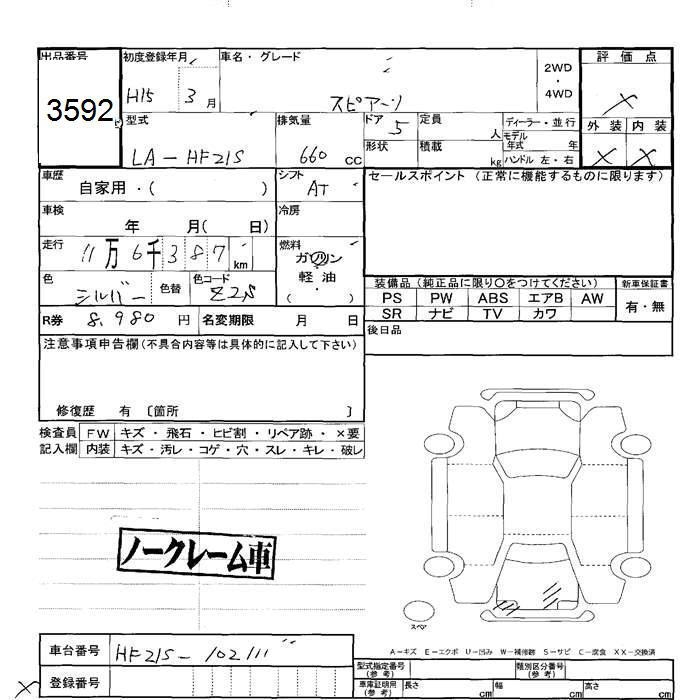 出品番号 初度登録年月 車名・グレード 2WD・4WD 評価点
3592 H15 3月 スピアーノ ×
型式 排気量 ドア 5 定員 人 ディーラー・並行 外装 内装
LA-HF21S 660 cc 形状 積載 kg モデル年式 年 ハンドル 左・右 × ×
車歴 自家用・( ) シフト AT セールスポイント (正常に機能するものに限ります)
車検 年 月( 日) 冷房
走行 11万6千387km 燃料 ガソリン・軽油・( )
色 シルバー 色替 色コード Z2S
装備品 (純正品に限り○をつけてください) 新車保証書
PS PW ABS エアB AW 有・無
SR ナビ TV カワ
R券 8,980 円 名変期限 月 日 後日品
注意事項申告欄(不具合内容等は具体的に記入して下さい)
修復歴 有 〔箇所 〕
検査員 FW キズ・飛石・ヒビ割・リペア跡・×要
記入欄 内装 キズ・汚レ・コゲ・穴・スレ・キレ・破レ
ノークレーム車
スペア
A-キズ E-エクボ U-凹み W-補修跡 S-サビ C-腐食 XX-交換済
車台番号 HF21S-102111
登録番号
×
型式指定番号(参考) 類別区分番号(参考)
車庫証明用(参考) 長さ cm 幅 cm 高さ cm